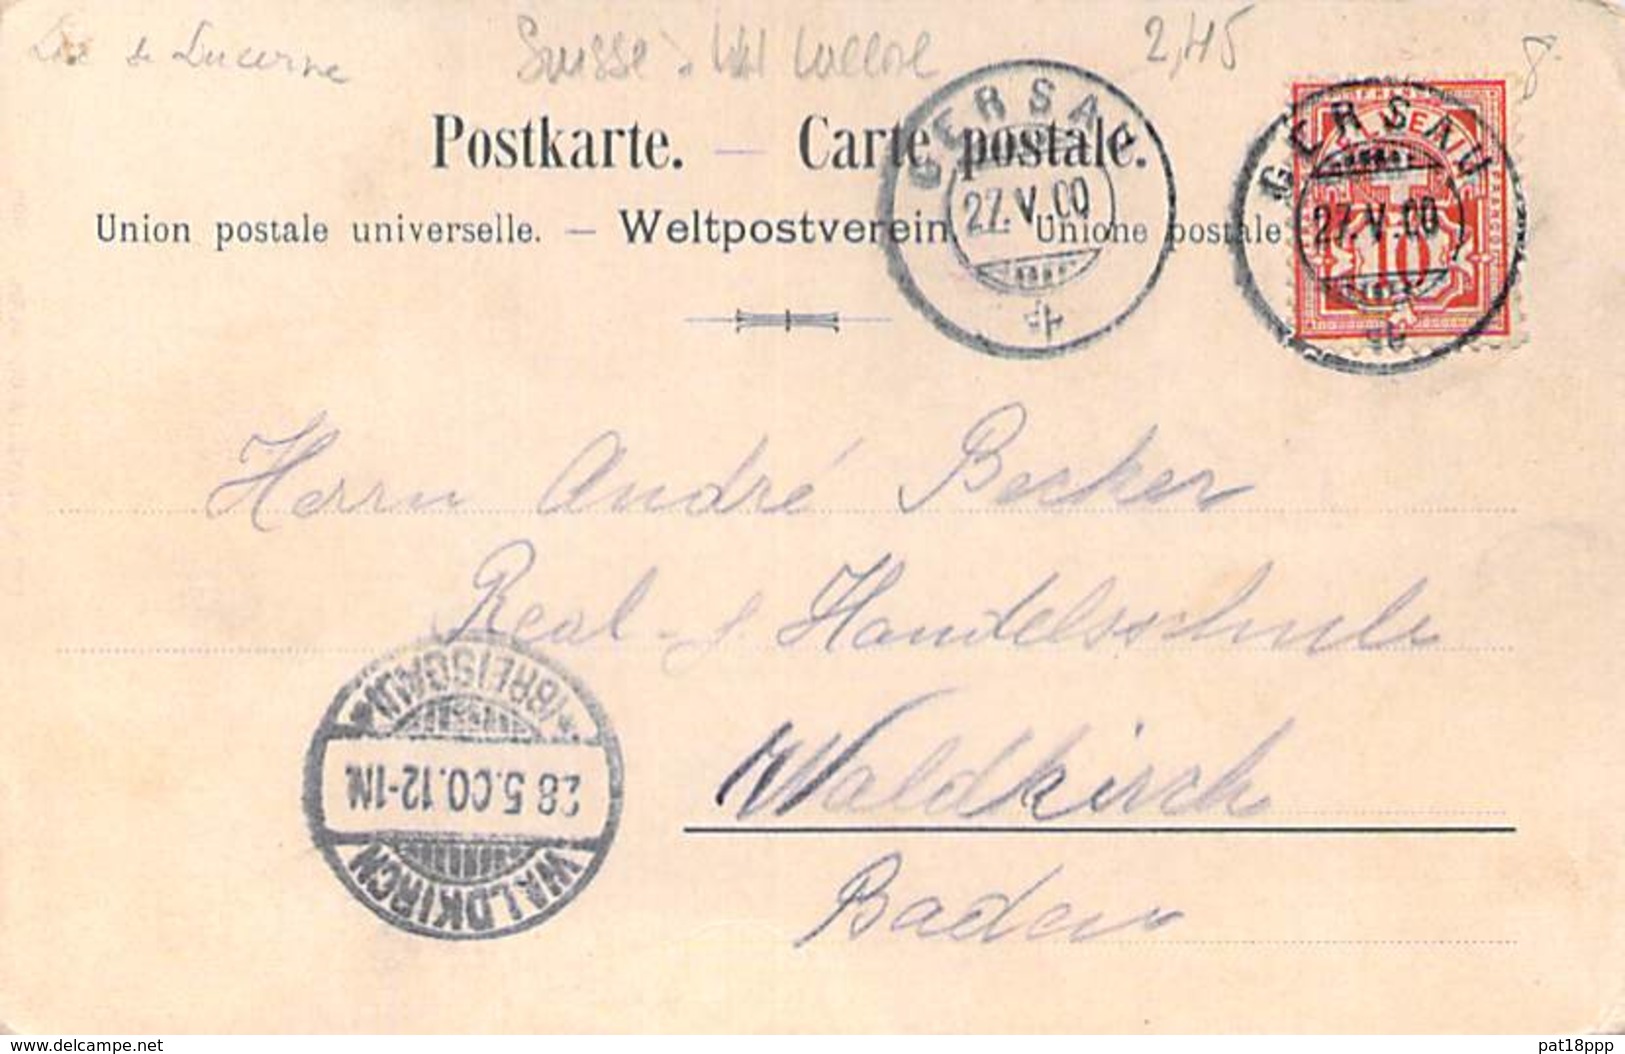 Lac de Lucerne
Suisse
2,45
8-
Postkarte. — Carte postale.
Union postale universelle. — Weltpostverein. Unione postale
GERSAU
27.V.00
GERSAU
27.V.00
10
Herrn André Becker
Real - & Handelsschule
Waldkirch
Baden
(BREISGAU)
28.5.00.12-1N.
WALDKIRCH
www.delcampe.net
pat18ppp